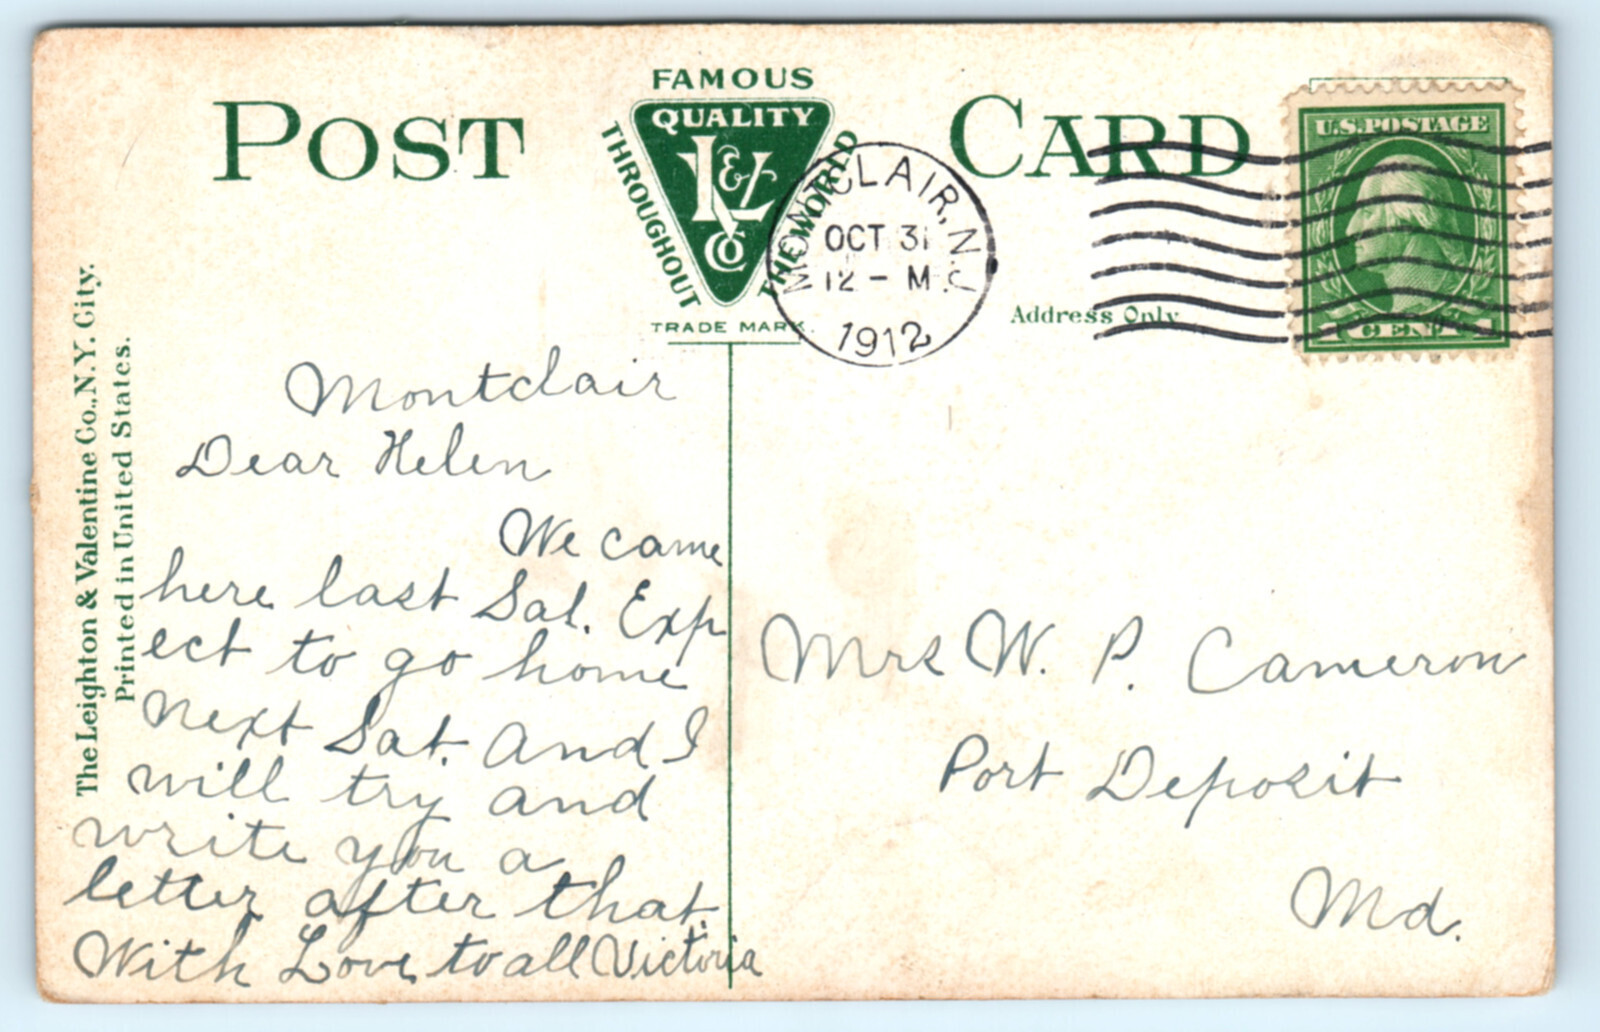 POST CARD
FAMOUS
QUALITY
THROUGHOUT
THE WORLD
L & V
CO
TRADE MARK.
MONTCLAIR, N.J.
OCT 31
12 - M
1912
U.S. POSTAGE
1 CENT 1
Address Only
The Leighton & Valentine Co., N.Y. City.
Printed in United States.
Montclair
Dear Helen
We came
here last Sat. Exp
ect to go home
next Sat. And I
will try and
write you a
letter after that.
With Love to all Victoria
Mrs W. P. Cameron
Port Deposit
Md.